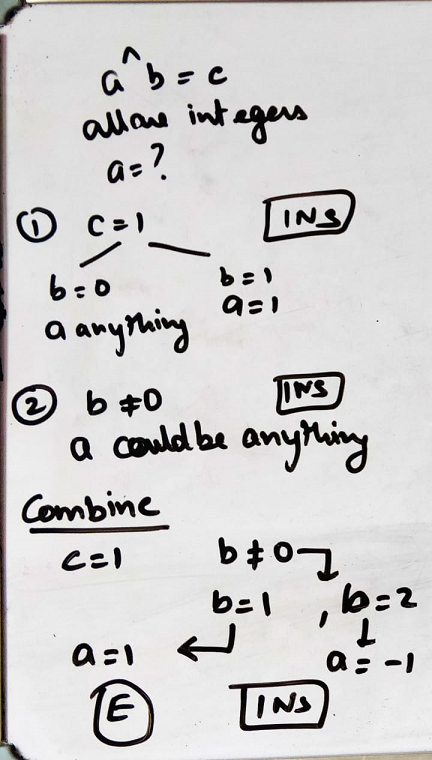 a^b = c
all are integers
a = ?
① c = 1 INS
b = 0 b = 1
a anything a = 1
② b ≠ 0 INS
a could be anything
Combine
c = 1 b ≠ 0
b = 1 , b = 2
a = 1 a = -1
E INS